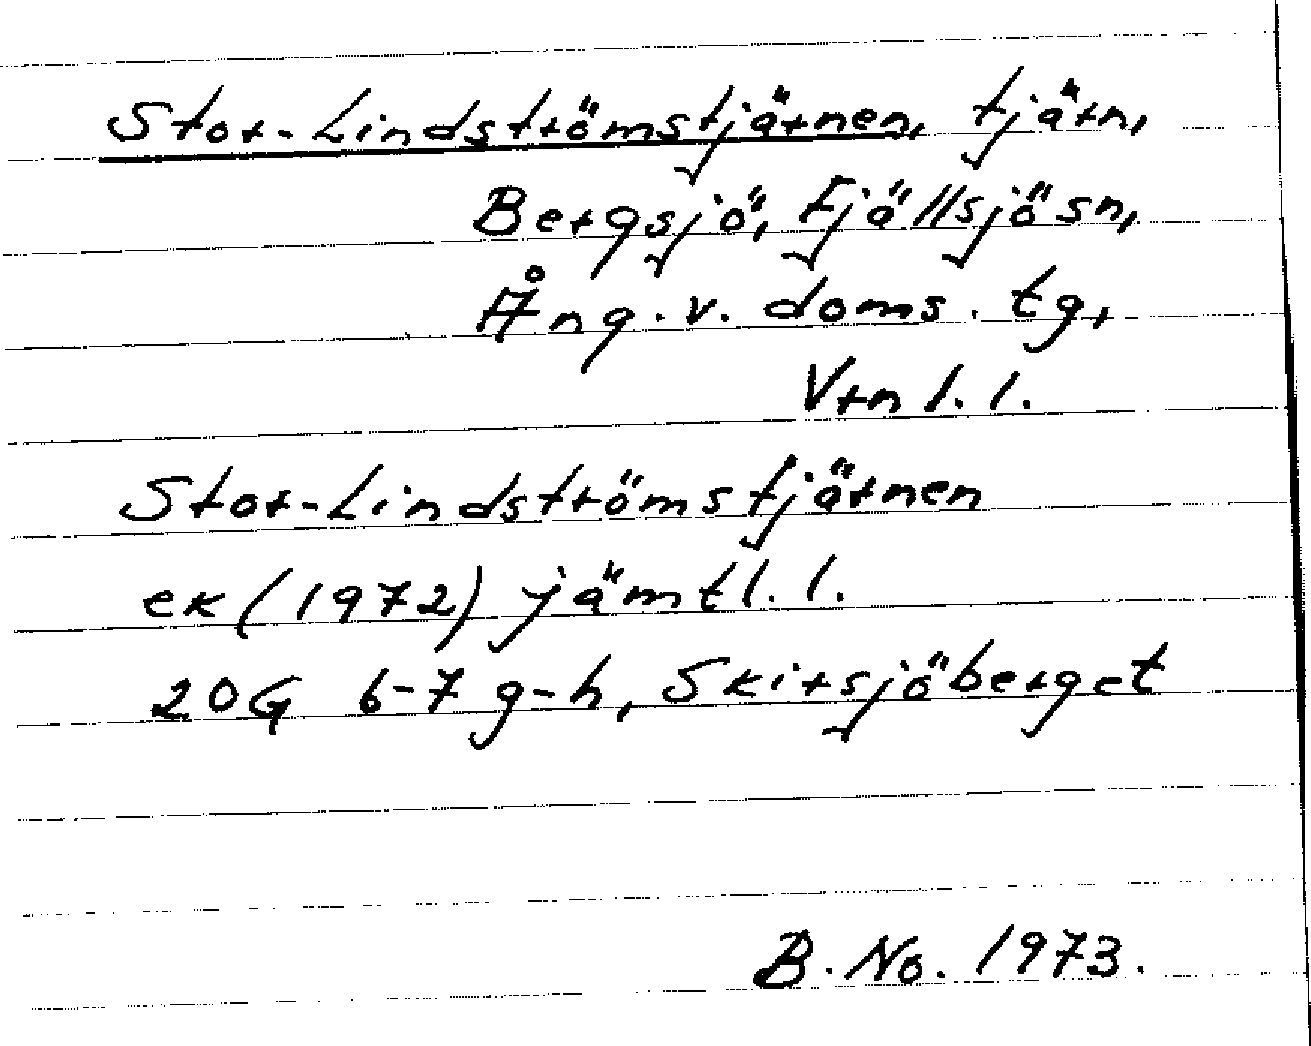 Stor-Lindströmstjärnen, tjärn,
Bergsjö, Fjällsjösn,
Ång. v. doms. tg,
Vrnl. l.
Stor-Lindströmstjärnen
ek (1972) jämtl. l.
20G 6-7 g-h, Skirsjöberget
B. No. 1973.